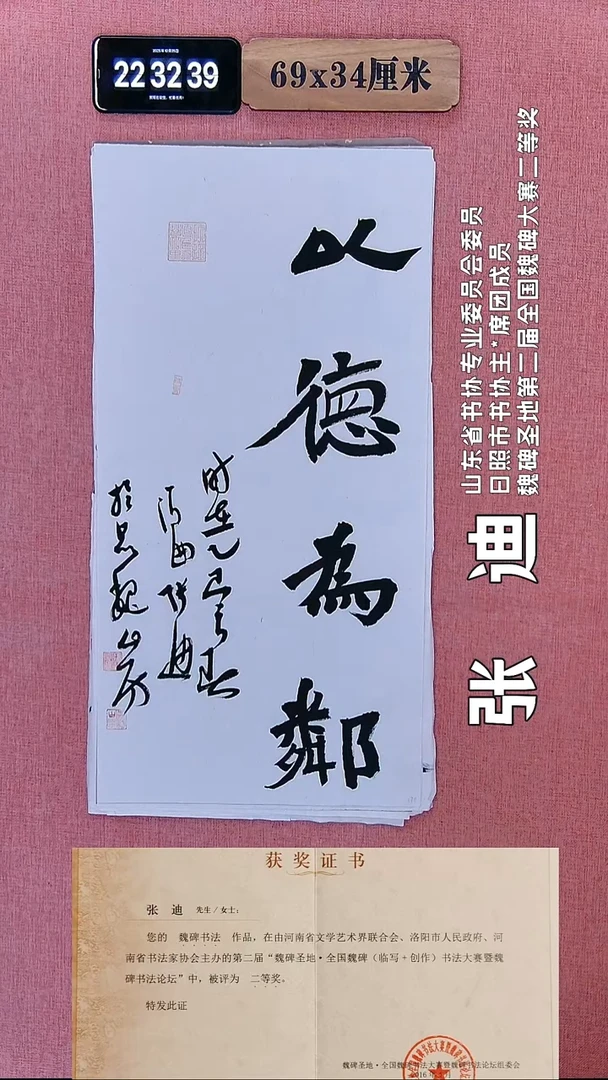 22 32 39
69x34厘米
以德為鄰
时在乙巳之春
张迪
山东省书协专业委员会委员
日照市书协主*席团成员
魏碑圣地第二届全国魏碑大赛二等奖
张 迪
获奖证书
张 迪 先生/女士：
您的 魏碑书法 作品，在由河南省文学艺术界联合会、洛阳市人民政府、河
南省书法家协会主办的第二届“魏碑圣地·全国魏碑（临写+创作）书法大赛暨魏
碑书法论坛”中，被评为 二等奖。
特发此证
魏碑圣地·全国魏碑书法大赛暨魏碑书法论坛组委会